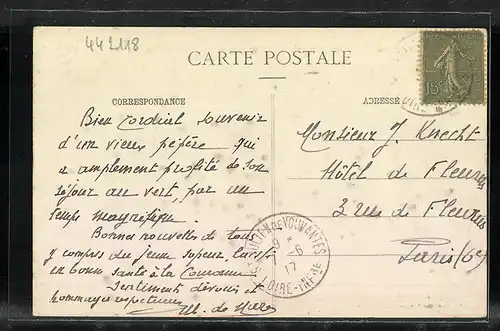 442118
CARTE POSTALE
CORRESPONDANCE
ADRESSE
15
Bien cordial souvenir
d'un vieux pépère qui
a amplement profité de son
séjour au vert, par un
temps magnifique.
Bonnes nouvelles de tous
y compris du jeune sapeur
en bonne santé à la
Sentiments dévoués et
hommages respectueux
Monsieur J. Knecht
Hôtel de Fleurus
3 rue de Fleurus
Paris (6e)
VOUVANTES
9
-6
17
LOIRE-INFRE